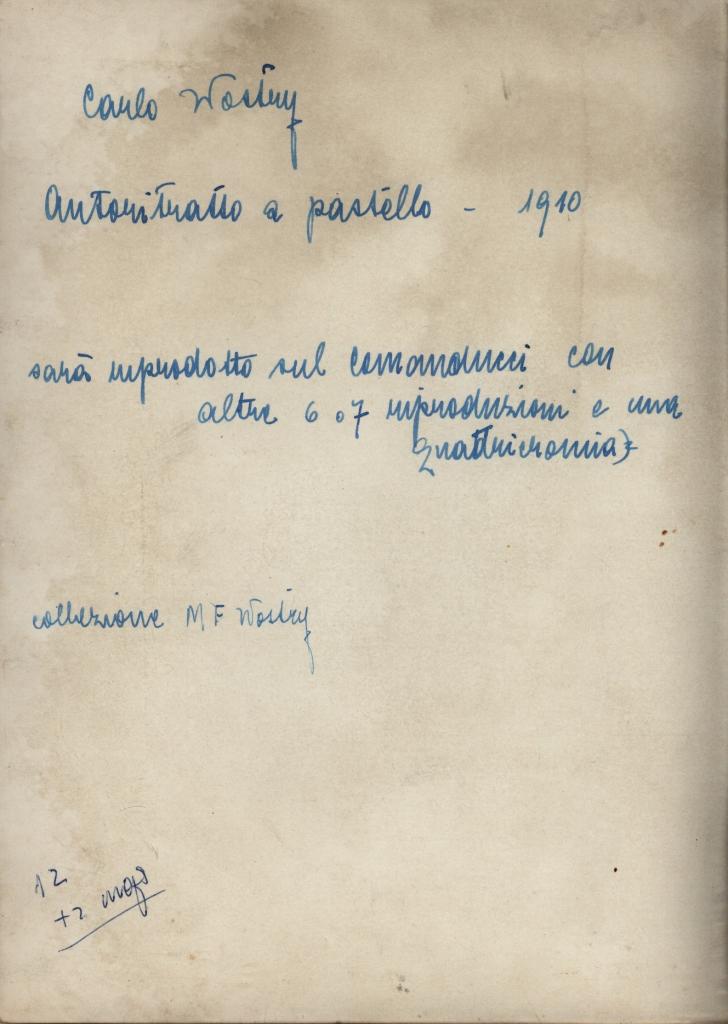 Carlo Wostry
Autoritratto a pastello - 1910
sarà riprodotto sul Comanducci con
altre 6 o 7 riproduzioni e una
quadricromia)
collezione M F Wostry
12
+2